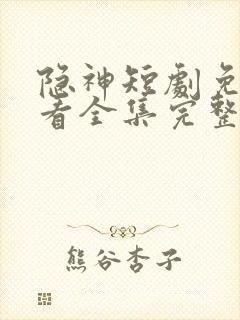 隐神短劇免
看全集完整
熊谷杏子